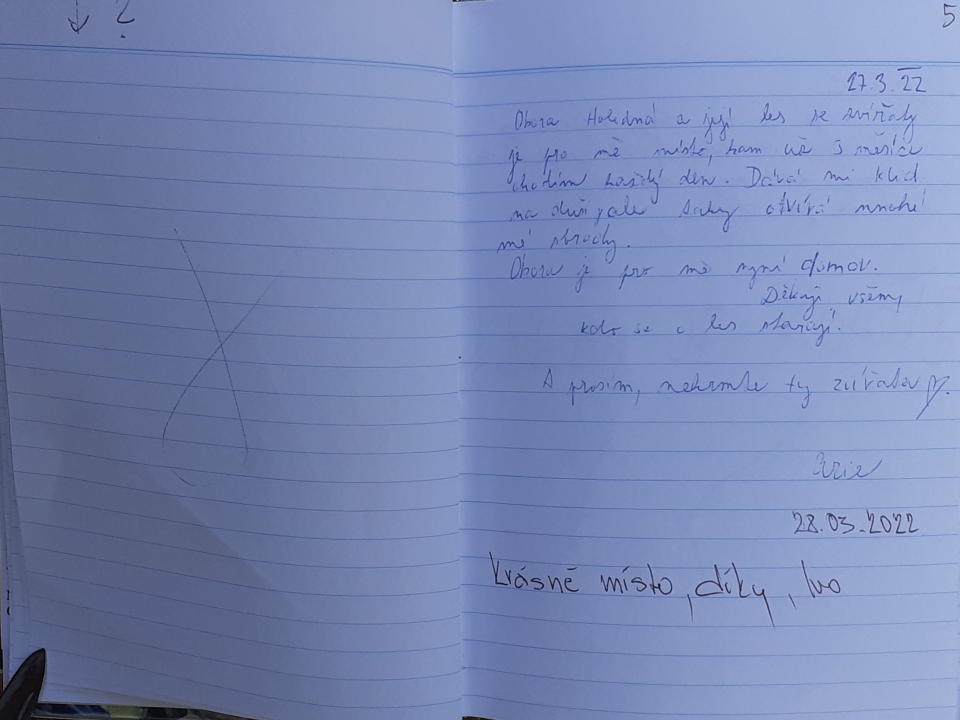 ?
5
27.3.22
Obora Holedná a její les se zvířaty
je pro mě místo, kam už 3 měsíce
chodím každý den. Dává mi klid
na duši, ale taky otvírá mnohé
mé
Obora je pro mě nyní domov.
Děkuji všem,
kdo se o les starají.
A prosím, nekrmte ty zvířata
28.03.2022
krásné místo, díky, Ivo